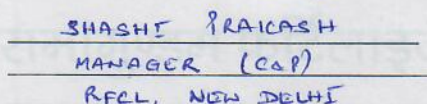 SHASHI PRAKASH
MANAGER (C&P)
RFCL, NEW DELHI